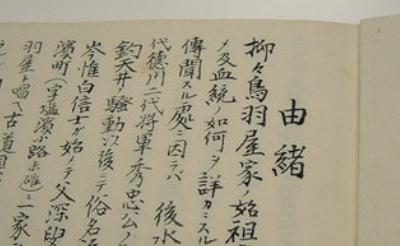 由緒
抑々鳥羽屋家ノ始祖
メ及血統ノ如何ヲ詳カニスル
傳聞スル處ニ因ラバ 後水
代徳川二代将軍秀忠公ノ
釣天井ノ騒動以後ニテ俗名
岑惟白信士ガ始メテ父深
濱町(字塩濱小路未確)ニ一家
羽屋ト唱ヘ古道